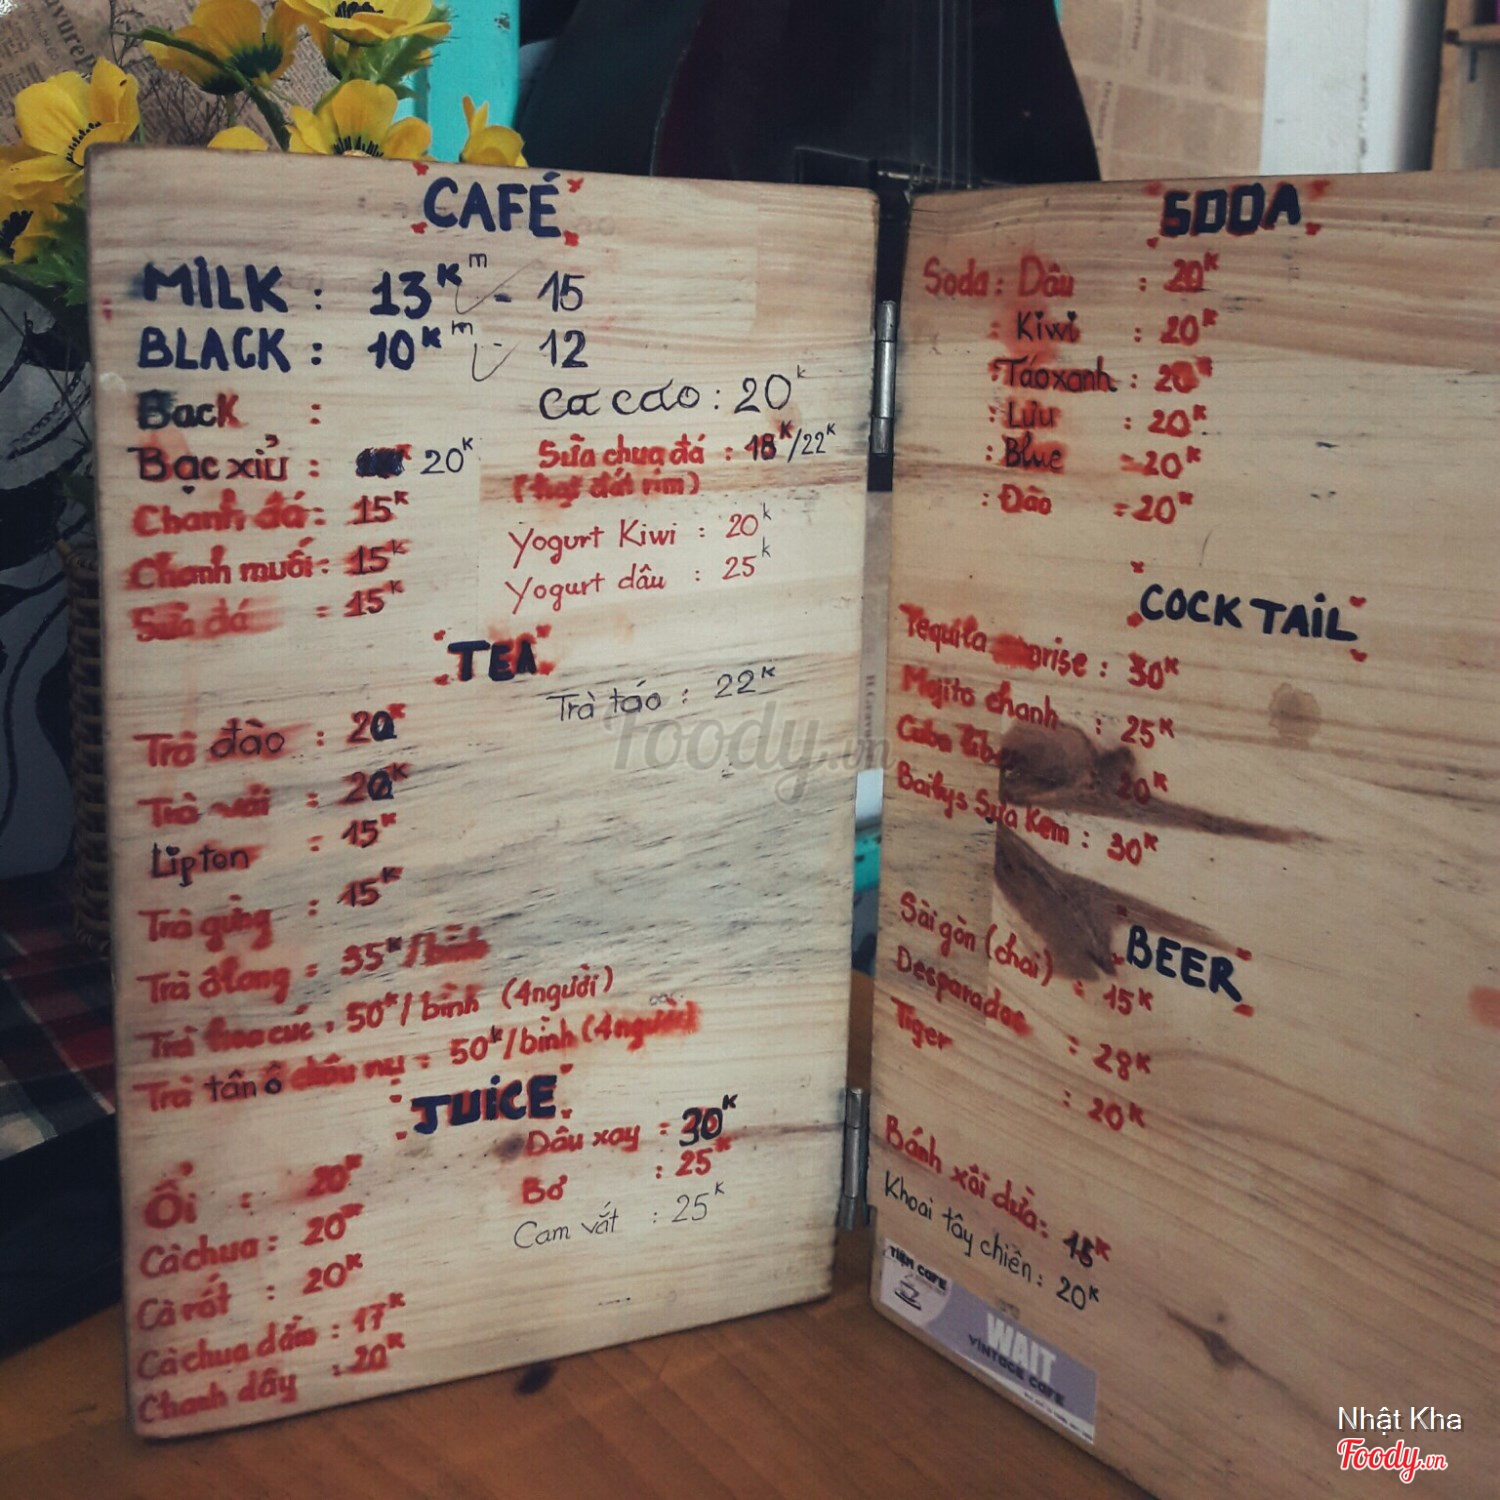 CAFÉ
MILK : 13K m - 15
BLACK : 10K m - 12
Back :
Bạc xỉu : 20K
Chanh đá : 15K
Chanh muối : 15K
Sữa đá : 15K
Ca cao : 20k
Sữa chua đá : 18K/22K
Yogurt Kiwi : 20k
Yogurt dâu : 25k
TEA
Trà đào : 20K
Trà vải : 20K
Lipton : 15K
Trà gừng : 15K
Trà ôlong = 35K/bình
Trà hoa cúc : 50K/bình (4người)
Trà tân ô châu nụ = 50K/bình (4người)
Trà táo : 22K
JUICE
Ổi : 20K
Cà chua : 20K
Cà rốt : 20K
Cà chua dầm : 17K
Chanh dây : 20K
Dâu xay = 30K
Bơ : 25K
Cam vắt : 25K
SODA
Soda : Dâu : 20K
: Kiwi : 20K
: Táo xanh : 20K
: Lựu : 20K
: Blue = 20K
: Đào = 20K
COCKTAIL
Tequila sunrise : 30K
Mojito chanh : 25K
Cuba Liber 20K
Bailys Sữa Kem : 30K
BEER
Sài gòn (chai) : 15K
Desparados : 28K
Tiger : 20K
Bánh xôi dừa : 15K
Khoai tây chiên : 20K
TIỆM CAFE
WAIT
VINTAGE CAFE
Foody.vn
Nhật Kha
Foody.vn